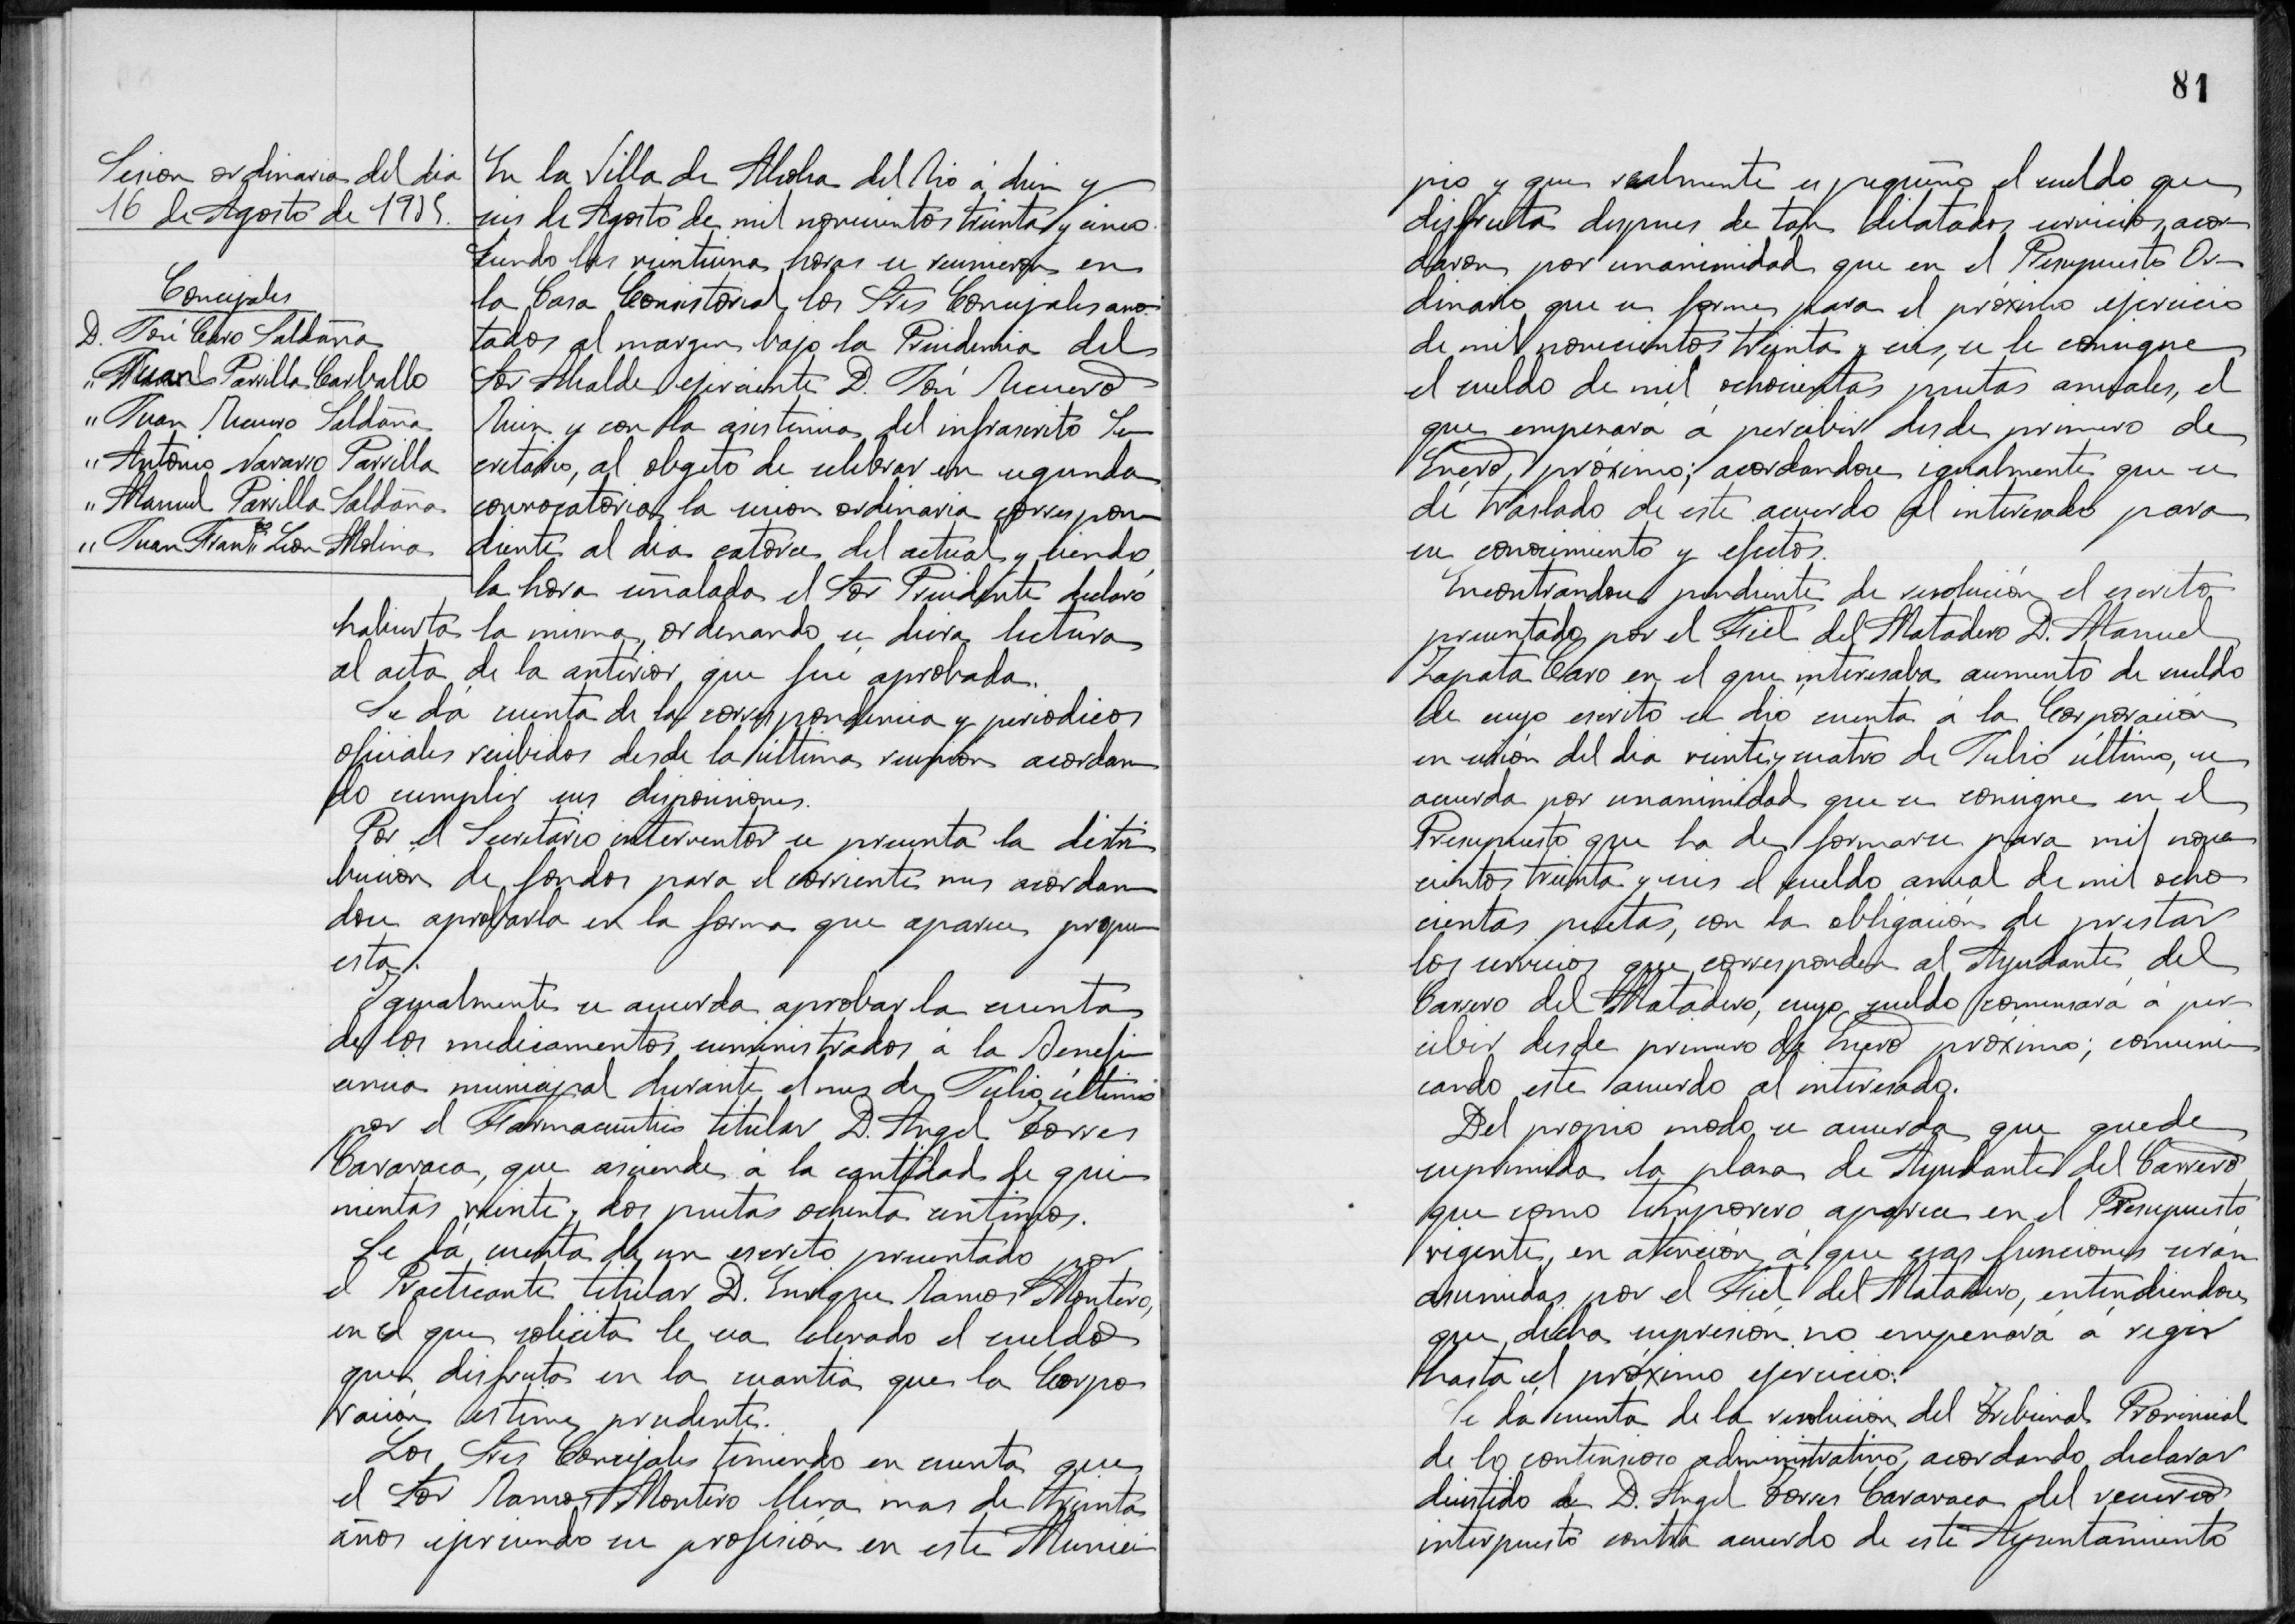 Sesion ordinaria del dia
16 de Agosto de 1935.
Concejales
D. José Caro Saldaña
" Manuel Parrilla Carballo
" Juan Recuero Saldaña
" Antonio Navarro Parrilla
" Manuel Parrilla Saldaña
" Juan Franco Leon Molina
En la Villa de Alcolea del Rio á dies y
seis de Agosto de mil novecientos treinta y cinco.
Siendo las veintiuna horas se reunieron en
la Casa Consistorial los Sres Concejales ano-
tados al margen bajo la Presidencia del
Sor Alcalde ejerciente D. José Recuero
Ruiz y con la asistencia del infrascrito Se
cretario, al obgeto de celebrar en segunda
convocatoria la sesion ordinaria correspon
diente al dia catorce del actual y siendo
la hora señalada el Sor Presidente declaró
habierta la misma, ordenando se diera lectura
al acta de la anterior que fué aprobada.
Se dá cuenta de la correspondencia y periodicos
oficiales recibidos desde la última reunion acordan
do cumplir sus disposiciones.
Por el Secretario interventor se presenta la distri
bucion de fondos para el corriente mes acordan
dose aprobarla en la forma que aparece propu
esta.
Igualmente se acuerda aprobar la cuenta
de los medicamentos suministrados á la Benefi
cencia municipal durante el mes de Julio último
por el Farmaceutico titular D. Angel Torres
Caravaca, que asciende á la cantidad de qui
nientas veinte y dos pesetas ochenta centimos.
Se dá cuenta de un escrito presentado por
el Practicante titular D. Enrique Ramos Montero,
en el que solicita le sea elevado el sueldo
que disfruta en la cuantia que la Corpo
ración estime prudente.
Los Sres Concejales teniendo en cuenta que
el Sor Ramos Montero lleva mas de treinta
años ejerciendo su profesión en este Munici
81
pio y que realmente es pequeño el sueldo que
disfruta despues de tan dilatados servicios, acor
daron por unanimidad que en el Presupuesto Or
dinario que se forme para el próximo ejercicio
de mil novecientos treinta y seis, se le consigne
el sueldo de mil ochocientas pesetas anuales, el
que empesará á percibir desde primero de
Enero próximo; acordandose igualmente que se
dé traslado de este acuerdo al interesado para
su conocimiento y efectos.
Encontrandose pendiente de resolución el escrito
presentado por el Fiel del Matadero D. Manuel
Zapata Caro en el que interesaba aumento de sueldo
de cuyo escrito se dió cuenta á la Corporación
en sesión del dia veinte y cuatro de Julio último, se
acuerda por unanimidad que se consigne en el
Presupuesto que ha de formarse para mil nove
cientos treinta y seis el sueldo anual de mil ocho
cientas pesetas, con la obligación de prestar
los servicios que corresponden al Ayudante del
Carrero del Matadero, cuyo sueldo comensará á per
cibir desde primero de Enero próximo; comuni
cando este acuerdo al interesado.
Del propio modo se acuerda que quede
suprimida la plasa de Ayudante del Carrero
que como temporero aparece en el Presupuesto
vigente, en atención á que esas funciones serán
asumidas por el Fiel del Matadero, entendiendose
que dicha supresión no empesará á regir
hasta el próximo ejercicio.
Se dá cuenta de la resolucion del Tribunal Provincial
de lo contencioso administrativo, acordando declarar
desistido á D. Angel Torres Caravaca del recurso
interpuesto contra acuerdo de este Ayuntamiento